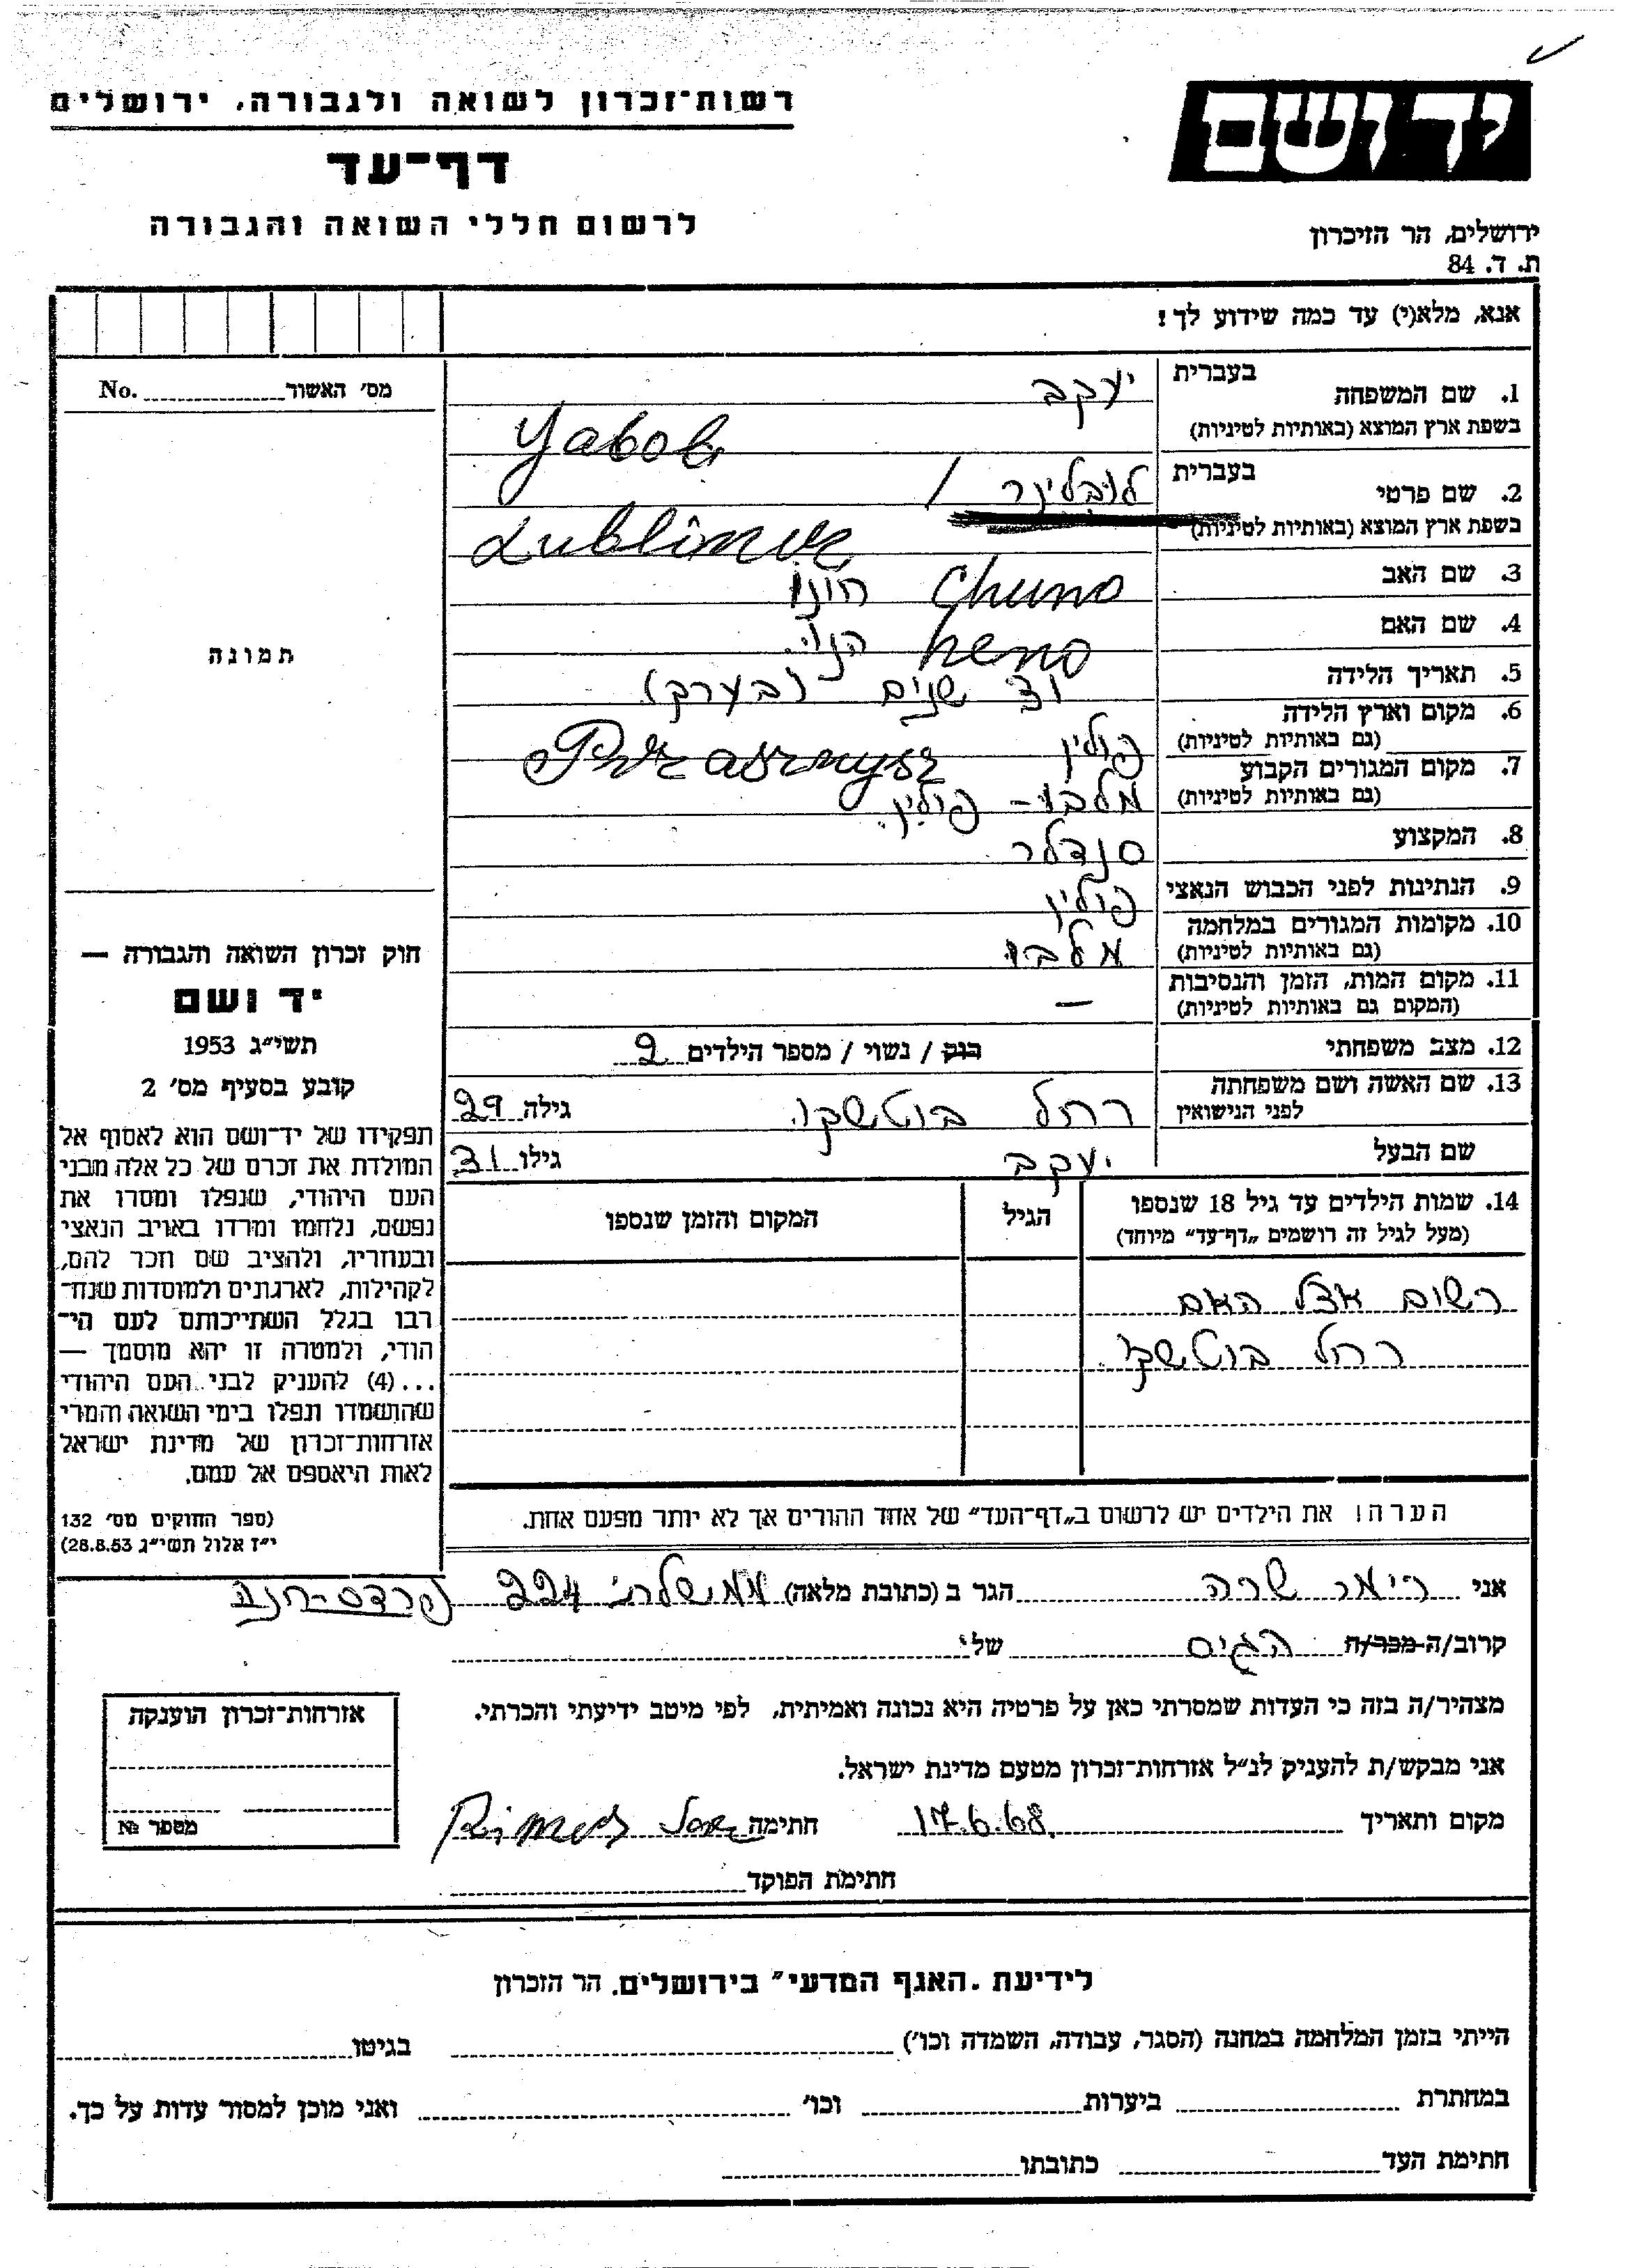 רשות־זכרון לשואה ולגבורה, ירושלים
יד ושם
דף־עד
לרשום חללי השואה והגבורה
ירושלים, הר הזיכרון
ת. ד. 84
אנא, מלא(י) עד כמה שידוע לך!
מס' האשור No.
תמונה
1. שם המשפחה בעברית יעקב
בשפת ארץ המוצא (באותיות לטיניות) Yakob
2. שם פרטי בעברית לובלינר /
בשפת ארץ המוצא (באותיות לטיניות) Lubliner
3. שם האב Chuno חונו
4. שם האם heno
5. תאריך הלידה 31 שנים (בערך)
6. מקום וארץ הלידה
(גם באותיות לטיניות) פולין Przasznysz
7. מקום המגורים הקבוע
(גם באותיות לטיניות) מלבו - פולין
8. המקצוע סנדלר
9. הנתינות לפני הכבוש הנאצי פולין
10. מקומות המגורים במלחמה
(גם באותיות לטיניות) מלבו
11. מקום המות, הזמן והנסיבות
(המקום גם באותיות לטיניות) —
12. מצב משפחתי רווק / נשוי / מספר הילדים 2
13. שם האשה ושם משפחתה
לפני הנישואין רחל בוטשקו גילה 29
שם הבעל יעקב גילו 31
14. שמות הילדים עד גיל 18 שנספו הגיל המקום והזמן שנספו
(מעל לגיל זה רושמים „דף־עד" מיוחד)
רשום אצל האם
רחל בוטשקו
הערה: את הילדים יש לרשום ב„דף־העד" של אחד ההורים אך לא יותר מפעם אחת.
חוק זכרון השואה והגבורה —
יד ושם
תשי״ג 1953
קובע בסעיף מס' 2
תפקידו של יד־ושם הוא לאסוף אל
המולדת את זכרם של כל אלה מבני
העם היהודי, שנפלו ומסרו את
נפשם, נלחמו ומרדו באויב הנאצי
ובעוזריו, ולהציב שם וזכר להם,
לקהילות, לארגונים ולמוסדות שנח־
רבו בגלל השתייכותם לעם הי־
הודי, ולמטרה זו יהא מוסמך —
...(4) להעניק לבני העם היהודי
שהושמדו ונפלו בימי השואה והמרי
אזרחות־זכרון של מדינת ישראל
לאות היאספם אל עמם.
(ספר החוקים מס' 132
י״ז אלול תשי״ג 28.8.53)
אני רימר שרה הגר ב (כתובת מלאה) ממשלתי 224 פרדס-חנה
קרוב/ה מכר/ה הגיס של
מצהיר/ה בזה כי העדות שמסרתי כאן על פרטיה היא נכונה ואמיתית, לפי מיטב ידיעתי והכרתי.
אני מבקש/ת להעניק לנ״ל אזרחות־זכרון מטעם מדינת ישראל.
מקום ותאריך 17.6.68 חתימה Rimer Sara
חתימת הפוקד
אזרחות־זכרון הוענקה
מספר №
לידיעת „האגף המדעי" בירושלים, הר הזכרון
הייתי בזמן המלחמה במחנה (הסגר, עבודה, השמדה וכו') בגיטו
במחתרת ביערות וכו' ואני מוכן למסור עדות על כך.
חתימת העד כתובתו